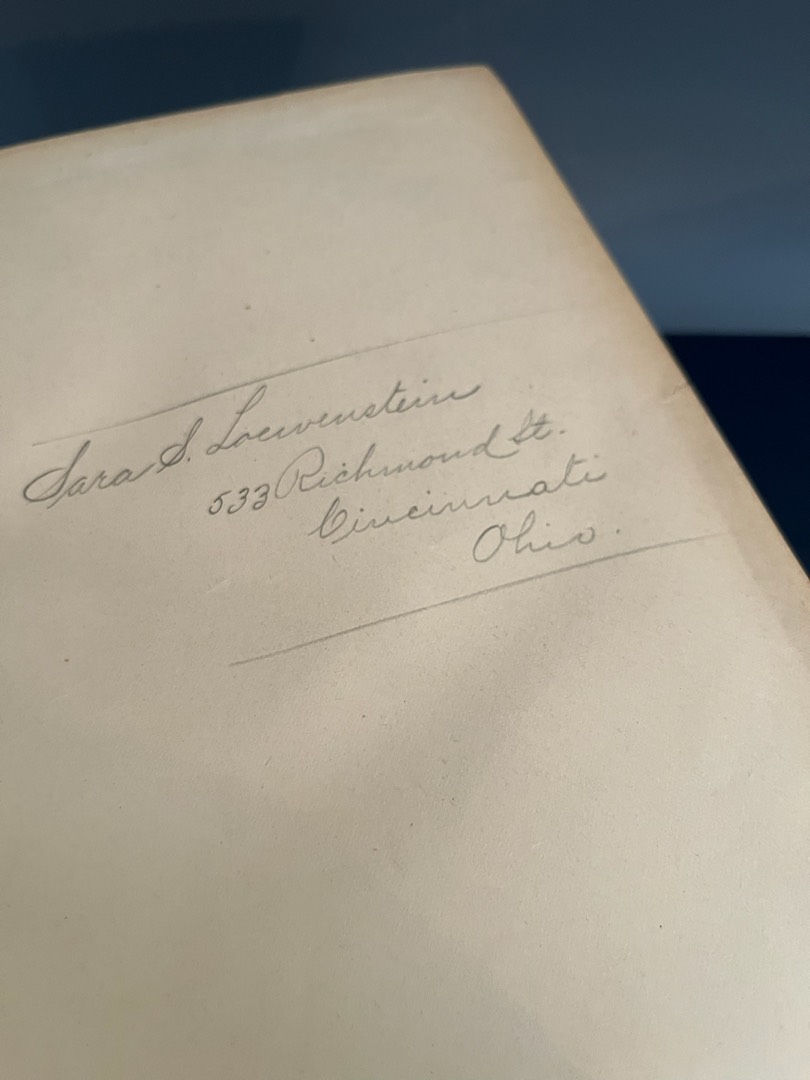 Sara S. Loewenstein
533 Richmond St.
Cincinnati
Ohio.